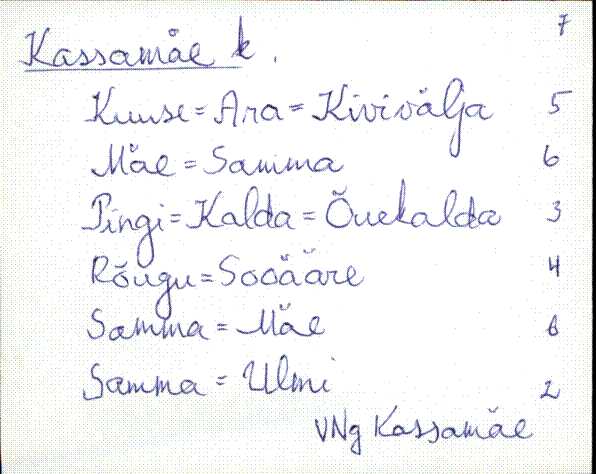 7
Kassamäe k.
Kuuse = Ara = Kivivälja 5
Mäe = Samma 6
Pingi = Kalda = Õuekalda 3
Rõugu = Sooääre 4
Samma = Mäe 6
Samma = Ulmi 2
VNg Kassamäe